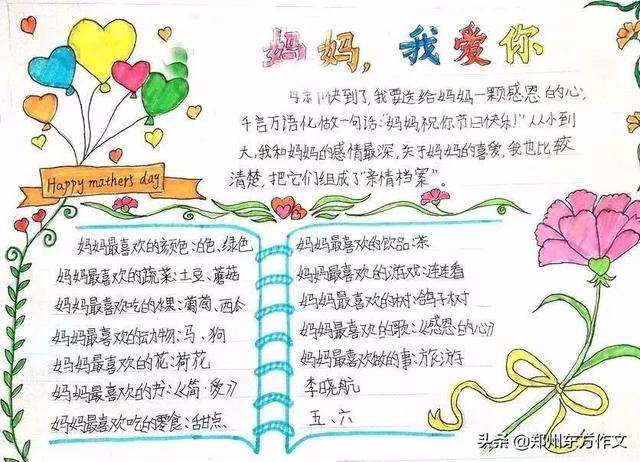 妈妈,我爱你
母亲节快到了,我要送给妈妈一颗感恩的心,
千言万语化做一句话:“妈妈祝你节日快乐!”从小到
大,我和妈妈的感情最深,关于妈妈的喜爱,我也比较
清楚,把它们组成了“亲情档案”。
Happy mathers day
妈妈最喜欢的颜色:白色、绿色
妈妈最喜欢的蔬菜:土豆、蘑菇
妈妈最喜欢吃的水果:葡萄、西瓜
妈妈最喜欢的动物:马、狗
妈妈最喜欢的花:荷花
妈妈最喜欢的书:《简·爱》
妈妈最喜欢吃的零食:甜点
妈妈最喜欢的饮品:茶
妈妈最喜欢的游戏:连连看
妈妈最喜欢的树:鸽子树
妈妈最喜欢的歌:《感恩的心》
妈妈最喜欢做的事:旅游
李晓航
五、六
头条@郑州东方作文